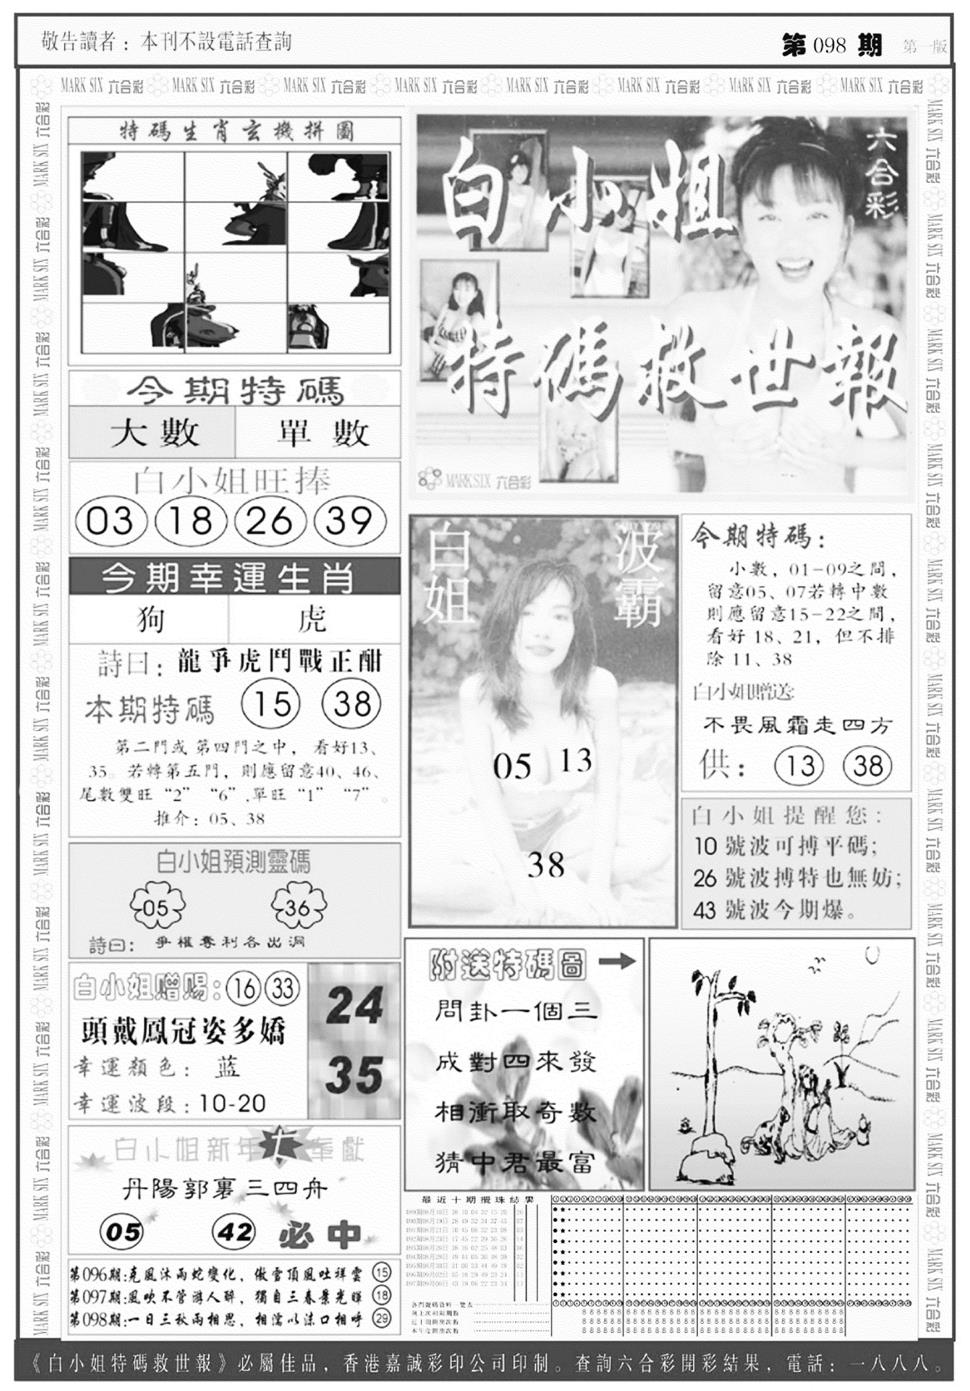 敬告讀者：本刊不設電話查詢
第 098 期 第一版
MARK SIX 六合彩 MARK SIX 六合彩 MARK SIX 六合彩 MARK SIX 六合彩 MARK SIX 六合彩 MARK SIX 六合彩 MARK SIX 六合彩 MARK SIX 六合彩
特碼生肖玄機拼圖
今期特碼
大數 單數
白小姐旺捧
03 18 26 39
今期幸運生肖
狗 虎
詩曰：龍爭虎鬥戰正酣
本期特碼 15 38
第二門或第四門之中，看好13、
35。若轉第五門，則應留意40、46、
尾數雙旺“2” “6”,單旺“1” “7”。
推介：05、38
白小姐預測靈碼
05 36
詩曰：爭權奪利各出洞
白小姐赠賜：16 33
頭戴鳳冠姿多嬌
幸運顏色：蓝
幸運波段：10-20
24
35
白小姐新年 奉獻
丹陽郭裏三四舟
05 42 必中
第096期:克風沐雨蛇變化，傲雪頂風吐祥雲 15
第097期:風吹不管游人醉，獨自三春景光輝 18
第098期:一日三秋兩相思，相濡以沫口相呼 29
六合彩
白小姐
特碼救世報
MARK SIX 六合彩
白姐 波霸
05 13
38
今期特碼：
小數，01-09之間，
留意05、07若轉中數
則應留意15-22之間，
看好 18、21，但不排
除 11、38
白小姐贈送:
不畏風霜走四方
供：13 38
白小姐提醒您：
10 號波可搏平碼；
26 號波搏特也無妨；
43 號波今期爆。
附送特碼圖
問卦一個三
成對四來發
相衝取奇數
猜中君最富
最近十期攪珠結果
《白小姐特碼救世報》必屬佳品，香港嘉誠彩印公司印制。查詢六合彩開彩結果，電話：一八八八。